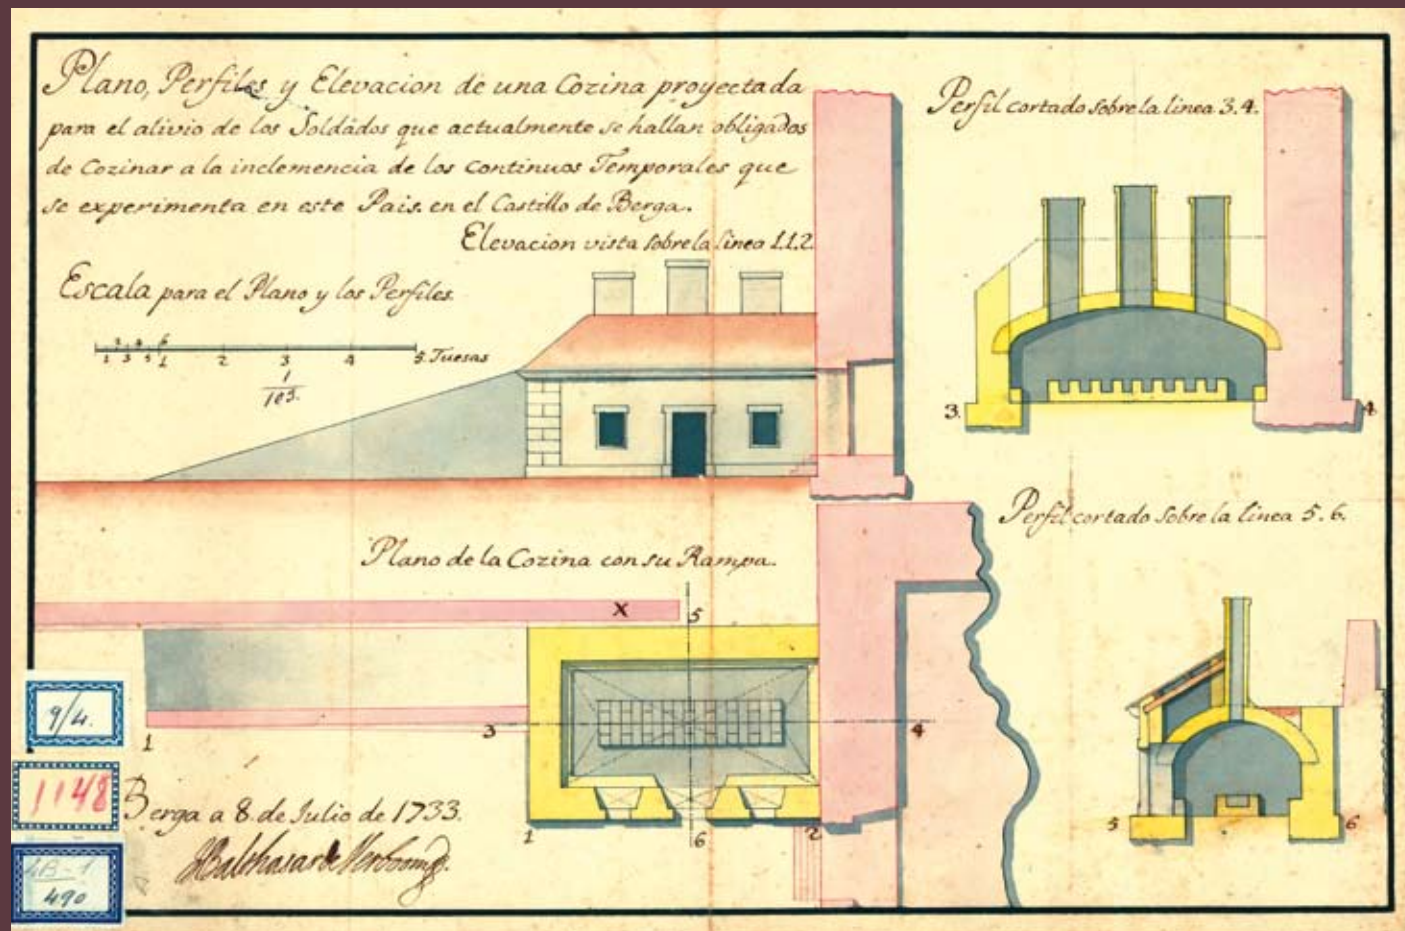 Plano, Perfiles y Elevacion de una Cozina proyectada
para el alivio de los Soldados que actualmente se hallan obligados
de Cozinar a la inclemencia de los continuos Temporales que
se experimenta en este Pais. en el Castillo de Berga.
Elevacion vista sobre la linea 1.1.2.
Escala para el Plano y los Perfiles.
2 4 6
1 3 5 1 2 3 4 5 Tuesas
1
103.
Perfil cortado sobre la linea 3.4.
3. 4
Perfil cortado sobre la linea 5.6.
5 6
Plano de la Cozina con su Rampa.
X 5
1 3 4
1 6 2
Berga a 8 de Julio de 1733.
9/4.
1148
4B-1
490